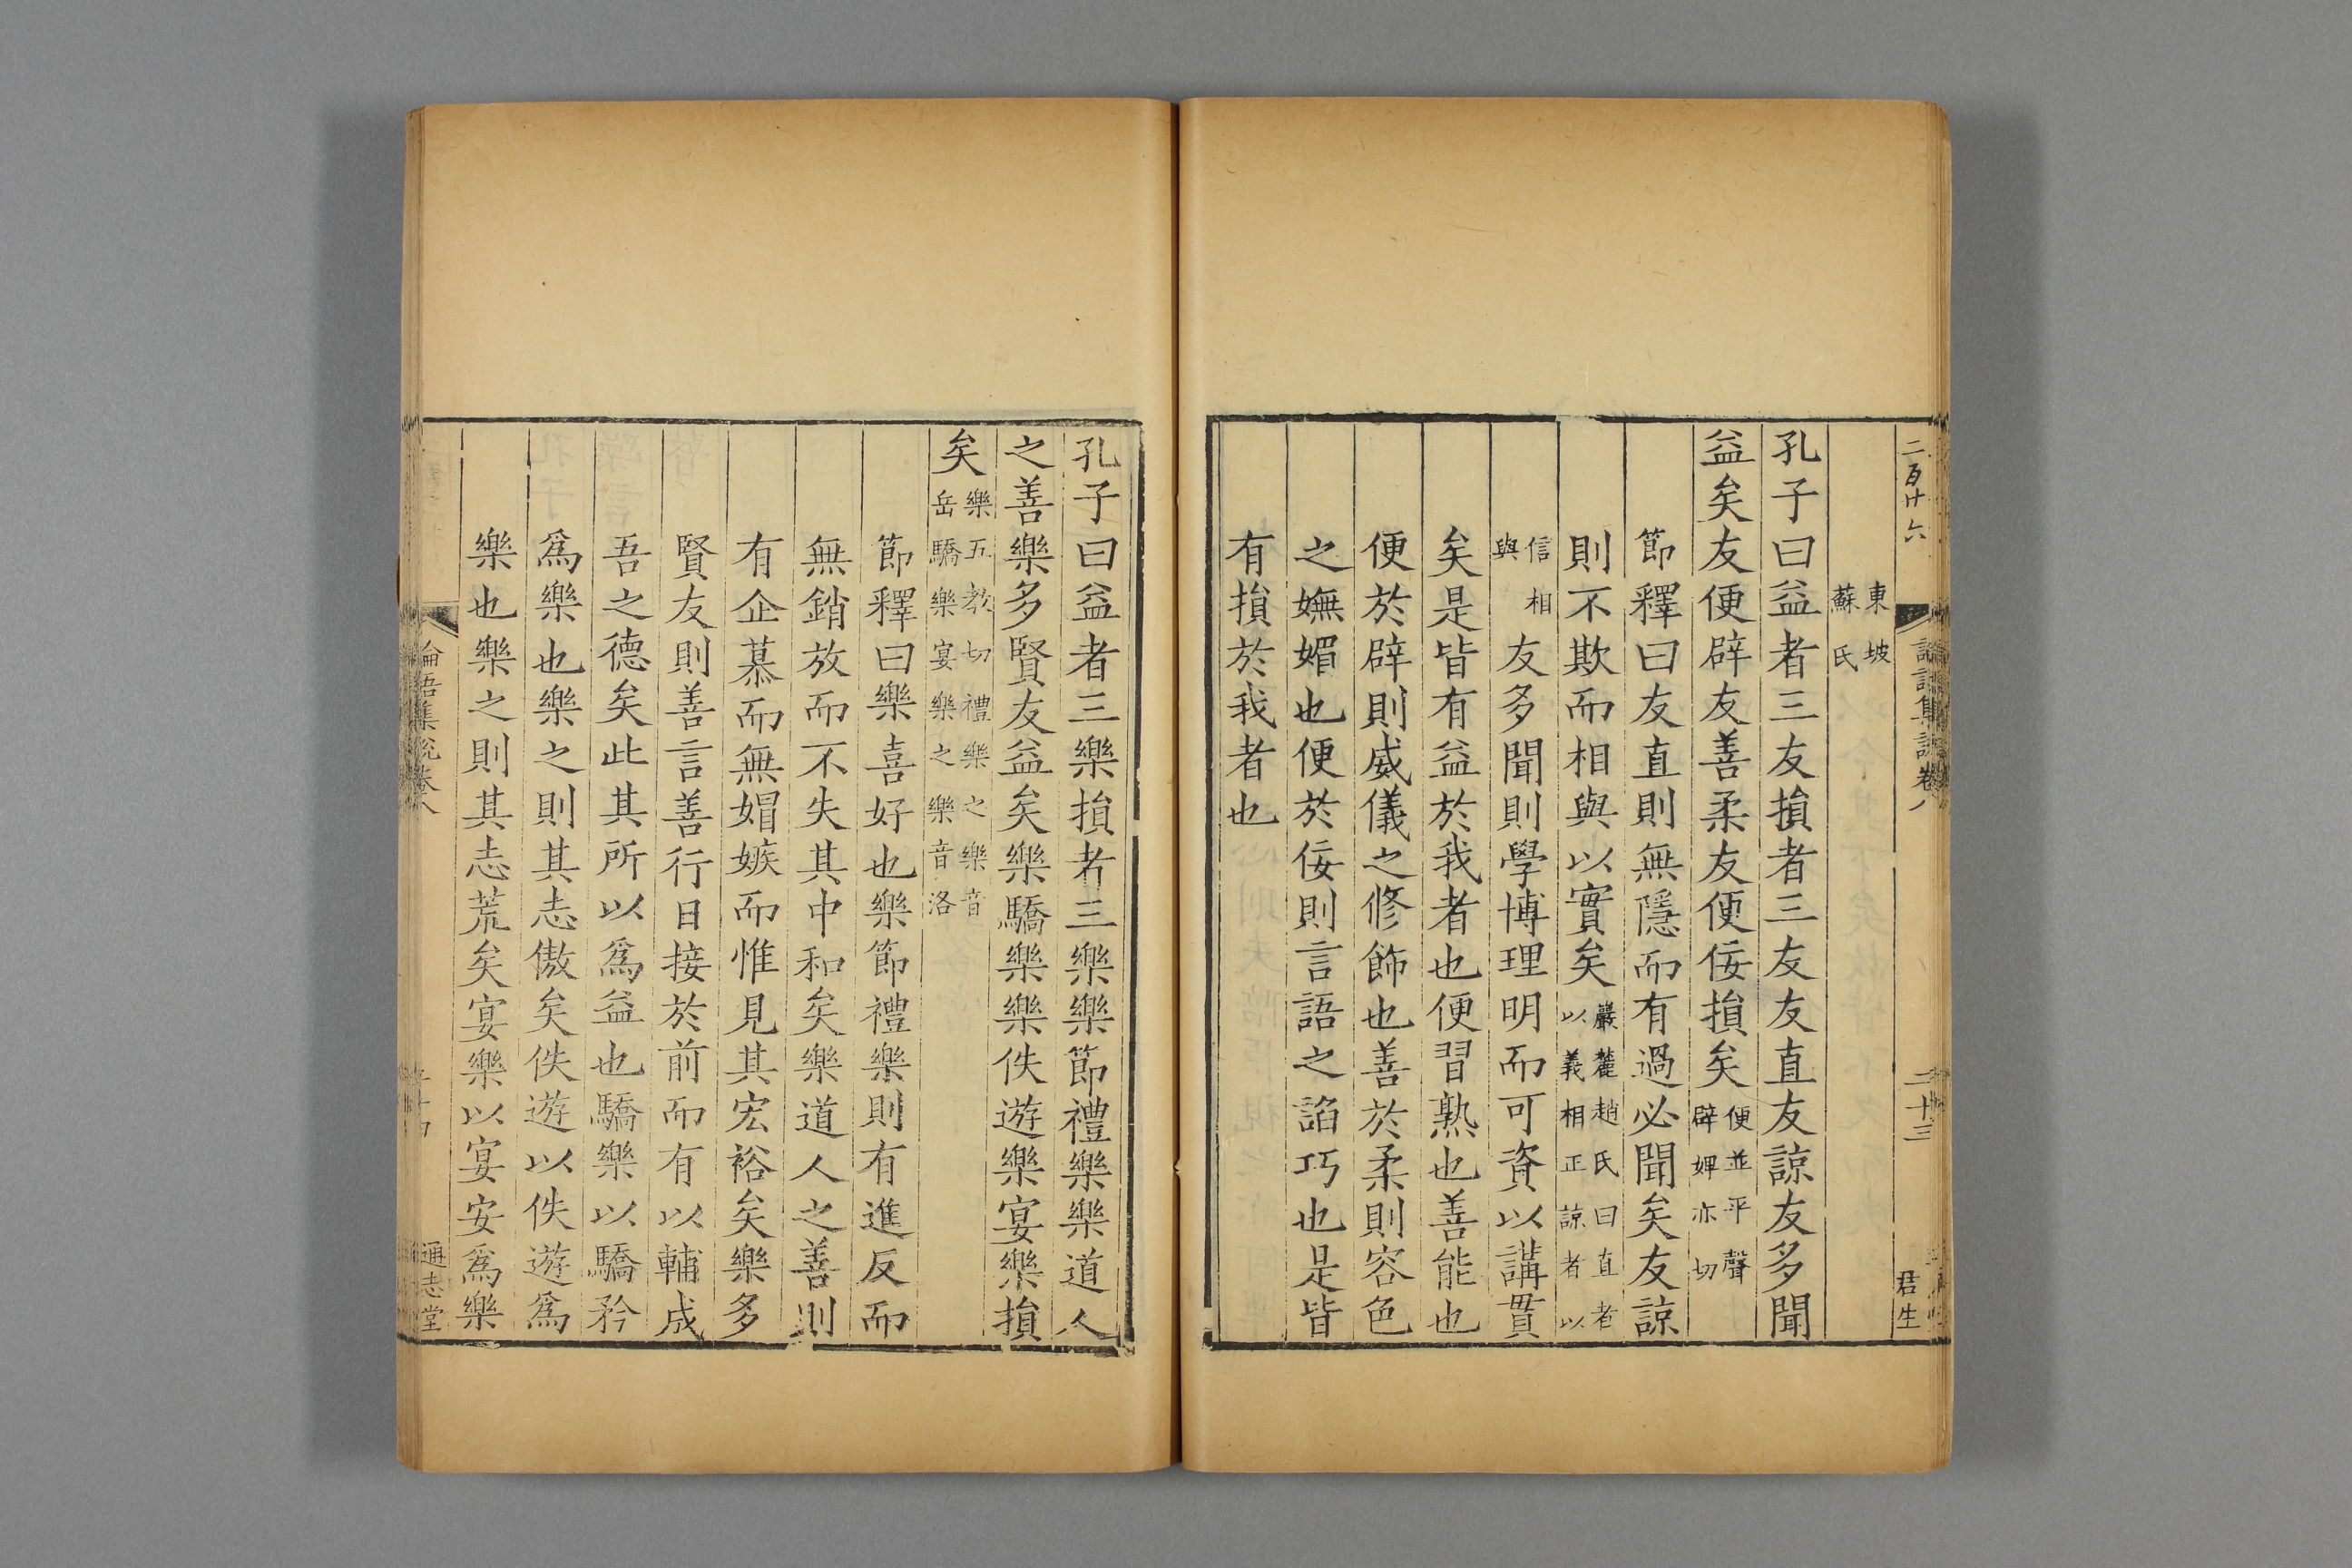 二百廿六
論語集說卷八
二十三
君生
東坡
蘇氏
孔子曰益者三友損者三友友直友諒友多聞
益矣友便辟友善柔友便佞損矣便並平聲
辟婢亦切
節釋曰友直則無隱而有過必聞矣友諒
則不欺而相與以實矣巖麓趙氏曰直者
以義相正諒者以
信相
與
友多聞則學博理明而可資以講貫
矣是皆有益於我者也便習熟也善能也
便於辟則威儀之修飾也善於柔則容色
之嫵媚也便於佞則言語之諂巧也是皆
有損於我者也
孔子曰益者三樂損者三樂樂節禮樂樂道人
之善樂多賢友益矣樂驕樂樂佚遊樂宴樂損
矣樂五教切禮樂之樂音
岳驕樂宴樂之樂音洛
節釋曰樂喜好也樂節禮樂則有進反而
無銷放而不失其中和矣樂道人之善則
有企慕而無媢嫉而惟見其宏裕矣樂多
賢友則善言善行日接於前而有以輔成
吾之德矣此其所以爲益也驕樂以驕矜
爲樂也樂之則其志傲矣佚遊以佚遊爲
樂也樂之則其志荒矣宴樂以宴安爲樂
論語集說卷八
通志堂